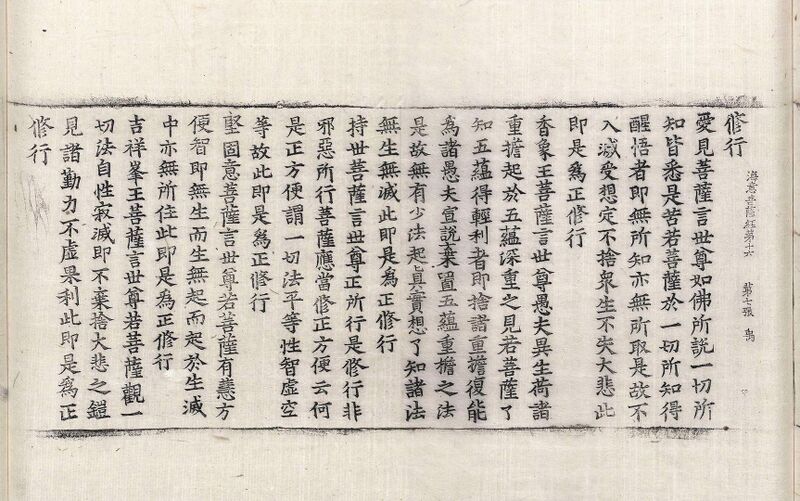 修行
海意菩薩經第十六 第七張 禹
愛見菩薩言世尊如佛所說一切所
知皆悉是苦若菩薩於一切所知得
醒悟者即無所知亦無所取是故不
入滅受想定不捨衆生不失大悲此
即是為正修行
香象王菩薩言世尊愚夫異生荷諸
重擔起於五蘊深重之見若菩薩了
知五蘊得輕利者即捨諸重擔復能
為諸愚夫宣說棄置五蘊重擔之法
是故無有少法起真實想了知諸法
無生無滅此即是為正修行
持世菩薩言世尊正所行是修行非
邪惡所行菩薩應當修正方便云何
是正方便謂一切法平等性智虛空
等故此即是為正修行
堅固意菩薩言世尊若菩薩有慧方
便智即無生而生無起而起於生滅
中亦無所住此即是為正修行
吉祥峯王菩薩言世尊若菩薩觀一
切法自性寂滅即不棄捨大悲之鎧
見諸勤力不虛果利此即是為正
修行